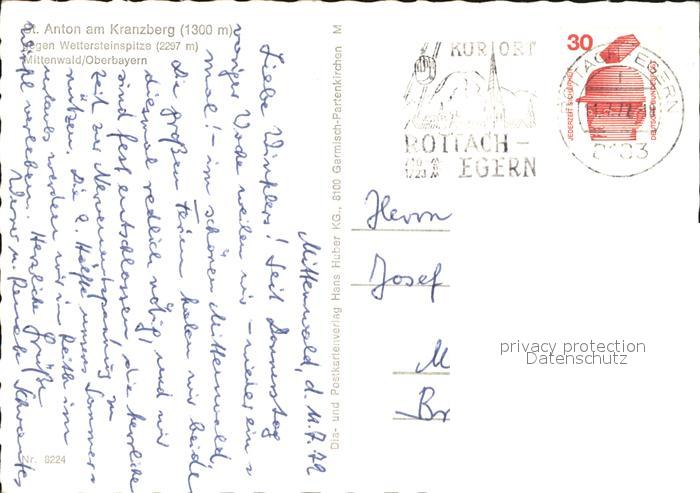 St. Anton am Kranzberg (1300 m)
gegen Wettersteinspitze (2297 m)
Mittenwald/Oberbayern
Mittenwald, d. 11.7.72
Liebe Winklers! Seit Donnerstag
voriger Woche weilen wir – wieder ein-
mal! – im schönen Mittenwald.
Die großen Ferien haben wir beide
diesmal redlich nötig, und wir
sind fest entschlossen, die herrliche
Zeit zur Nervenentspannung zu
nützen. Die 2. Hälfte unseres Sommer-
urlaubs werden wir in Reith im
verleben. Herzliche Grüße
Werner u. Renate
Nr. 8224
Dia- und Postkartenverlag Hans Huber KG., 8100 Garmisch-Partenkirchen M
KURORT
ROTTACH-
EGERN
30
JEDERZEIT SICHERHEIT
DEUTSCHE BUNDESPOST
ROTTACH-EGERN
8183
Herrn
Josef
M
Br
privacy protection
Datenschutz